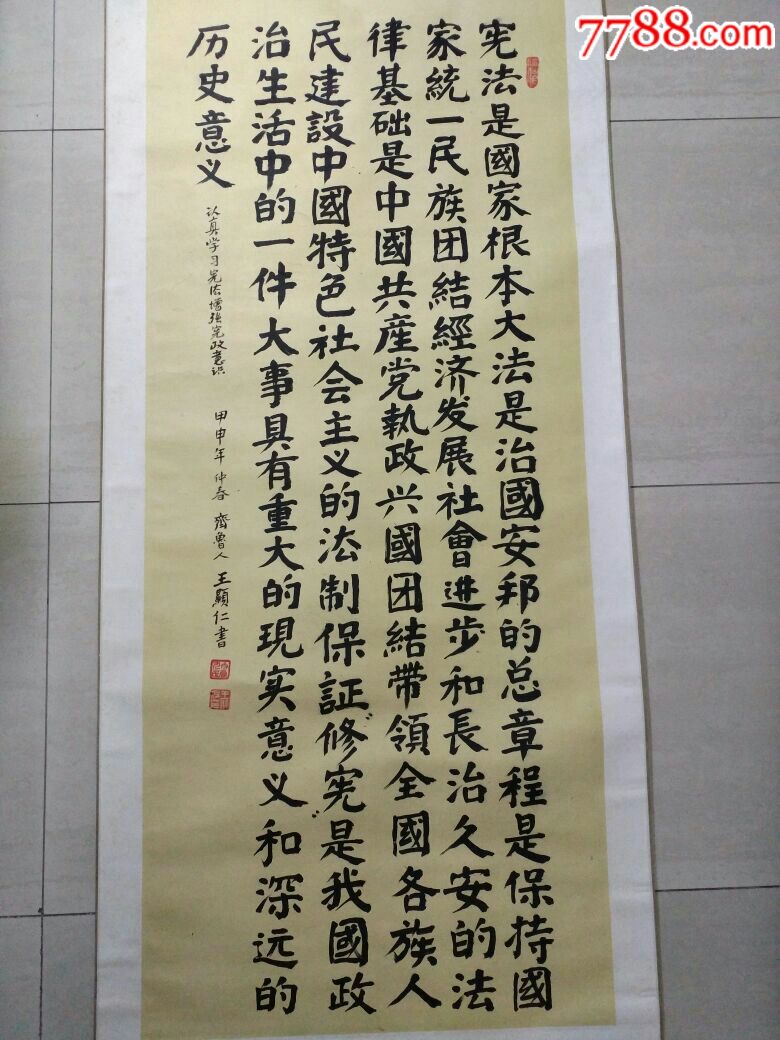 7788.com
宪法是國家根本大法是治國安邦的总章程是保持國
家統一民族团結經济发展社會進步和長治久安的法
律基础是中國共産党執政兴國团結带領全國各族人
民建設中國特色社会主义的法制保証修宪是我國政
治生活中的一件大事具有重大的現实意义和深远的
历史意义
认真学习宪法增强宪政意识
甲申年仲春 齊魯人 王顯仁書